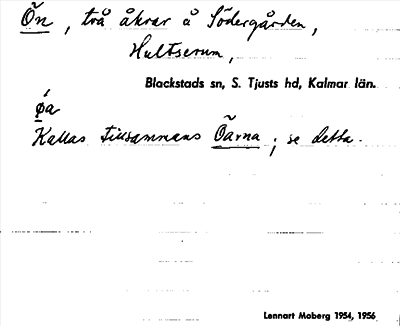 Õn, två åkrar å Södergården,
Hultserum,
Blackstads sn, S. Tjusts hd, Kalmar län.
ǿa
Kallas tillsammans Õarna; se detta.
Lennart Moberg 1954, 1956